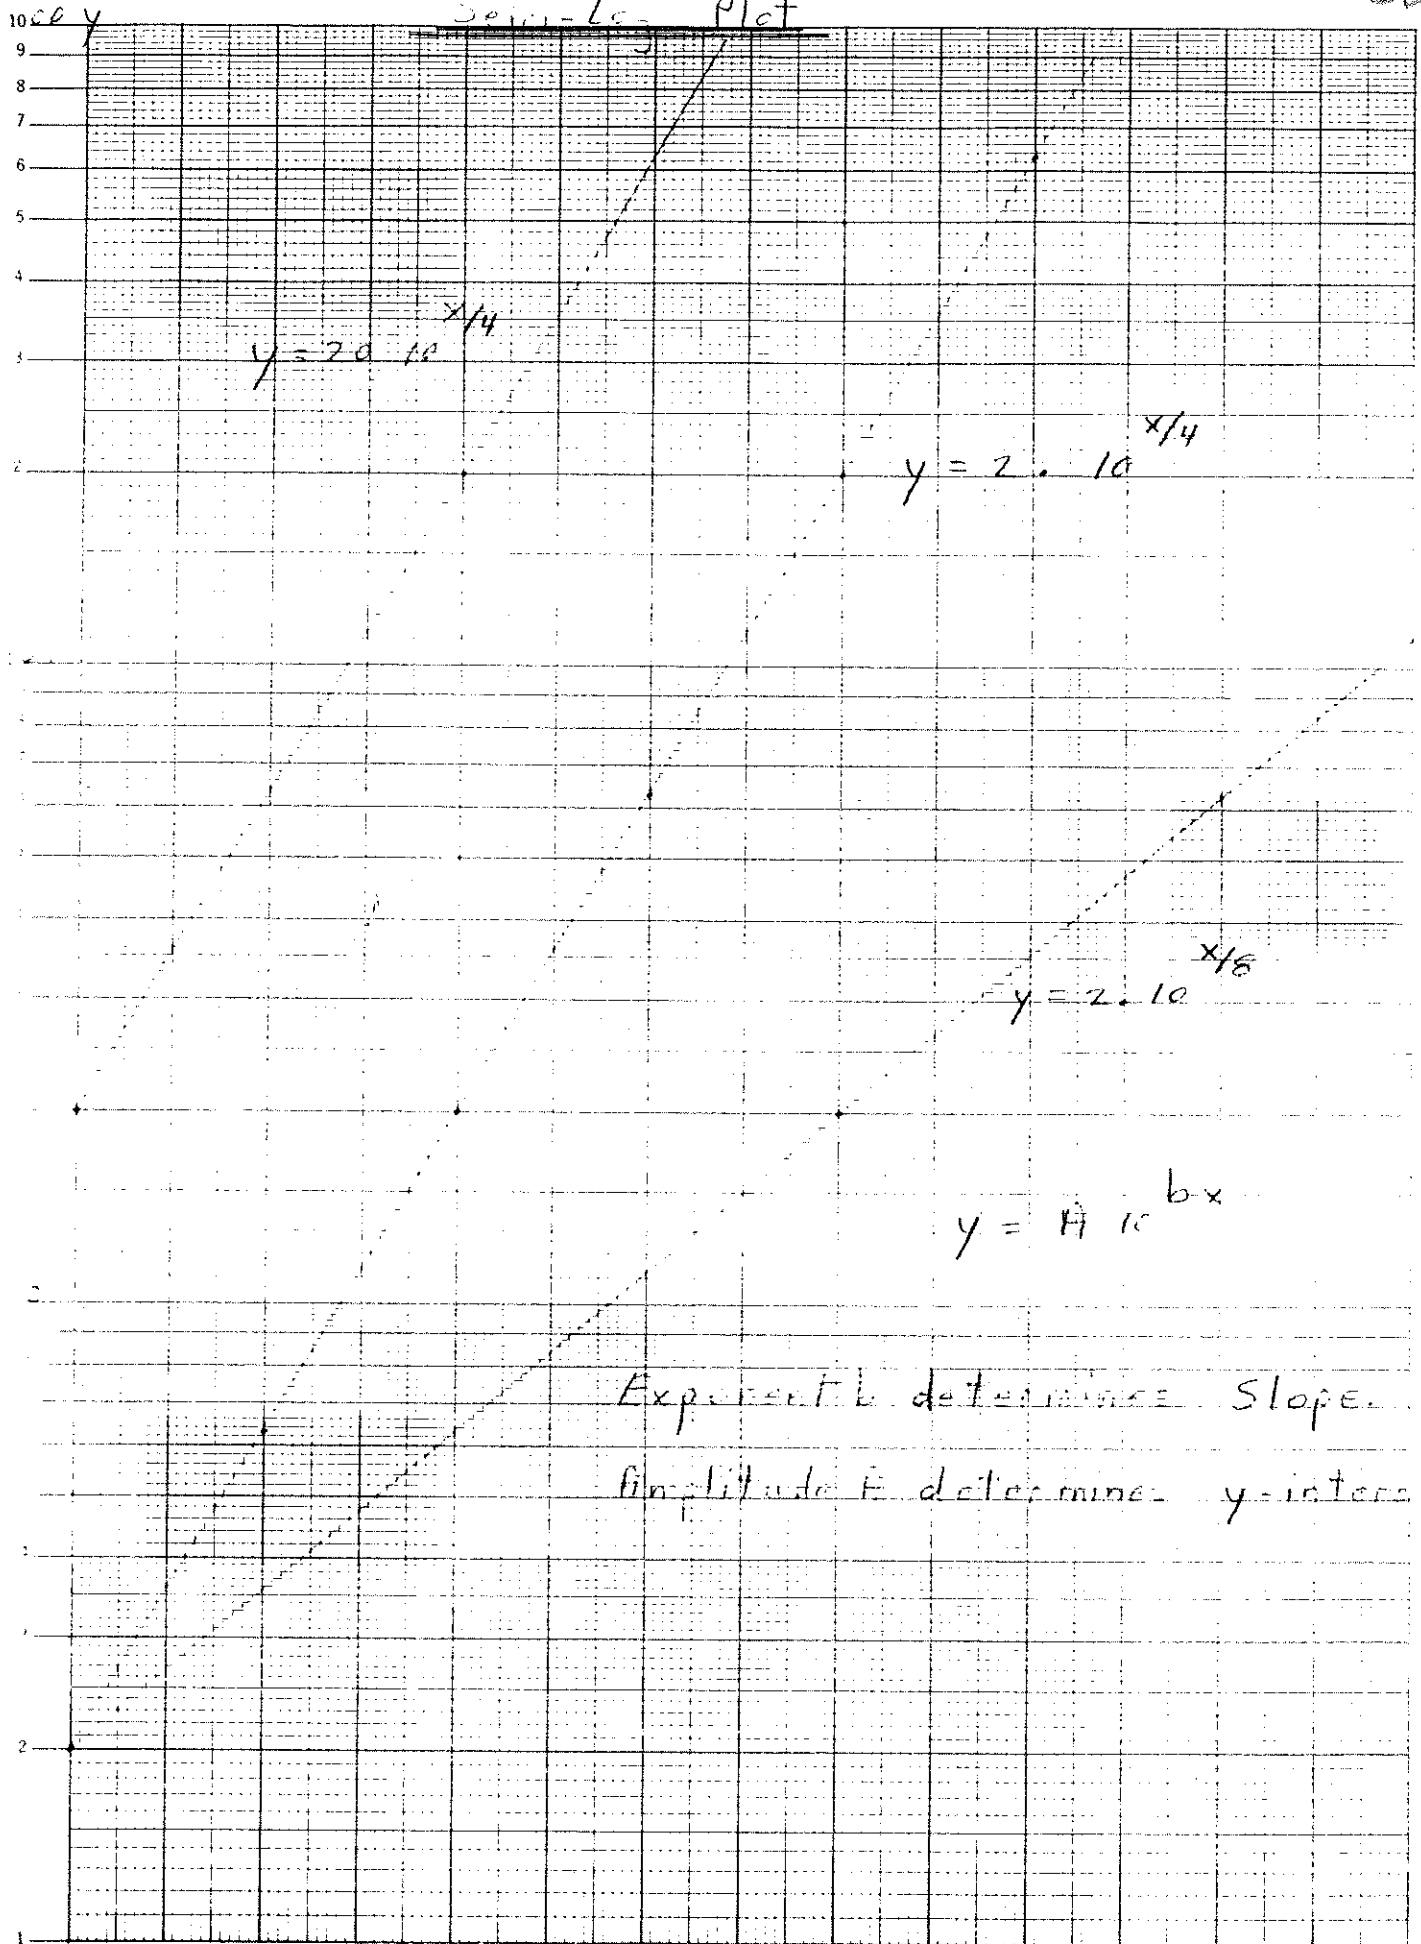 1000 y
Semi-Log Plot
9
8
7
6
5
4
y = 20 10^x/4
3
y = 2 . 10^x/4
2
y = 2 . 10^x/8
y = A 10^bx
Exponent b determines Slope.
Amplitude determines y-interc
2
1